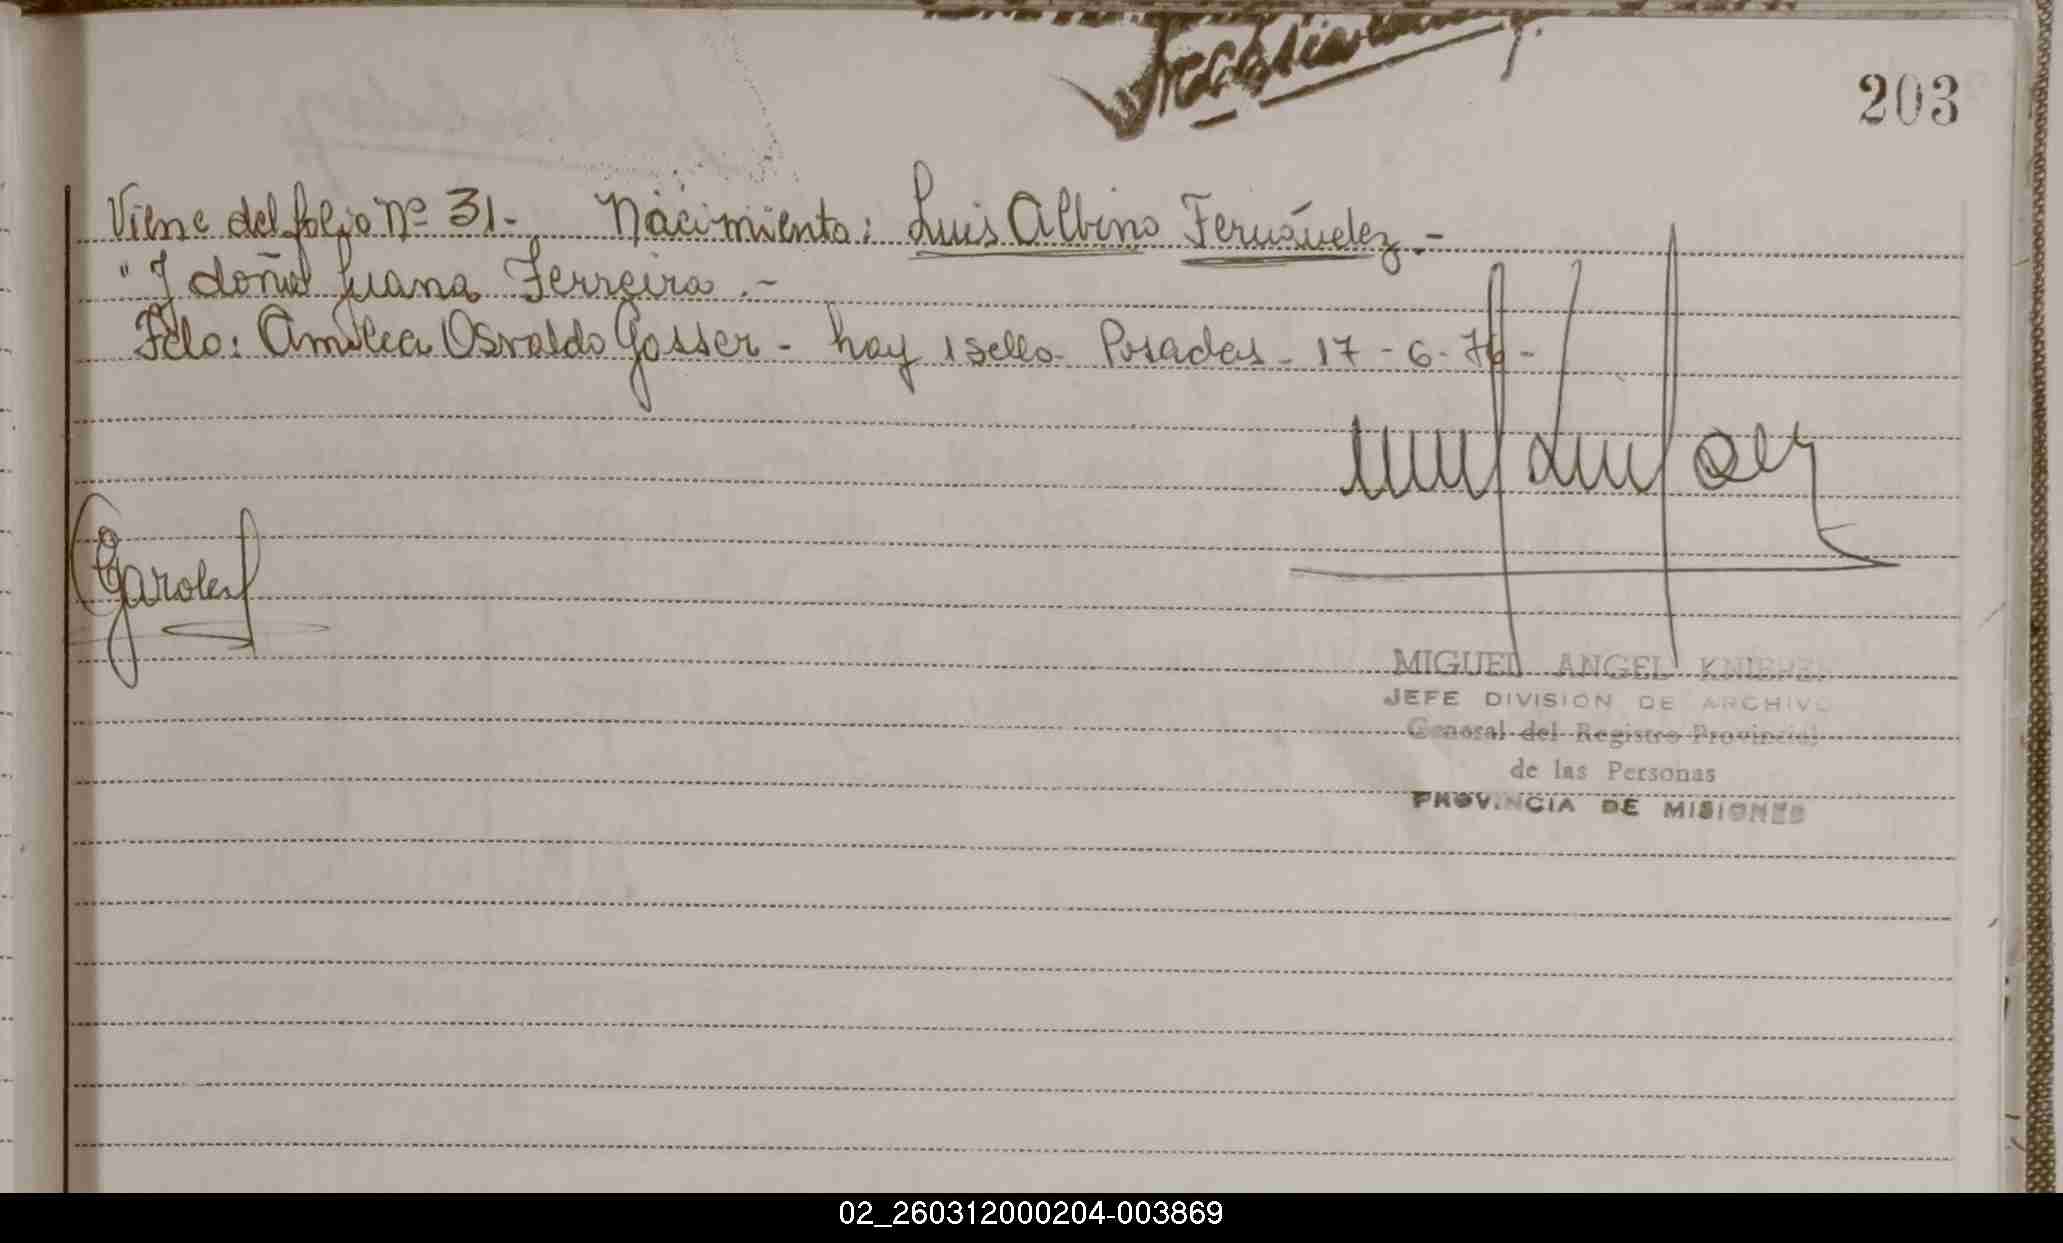 203
Viene del folio Nº 31- Nacimiento: Luis Albino Fernández.-
" Y doña Juana Ferreira.-
Fdo: Amilca Osvaldo Gosser - hay 1 sello- Posadas - 17 - 6 - 76 -
MIGUEL ANGEL
JEFE DIVISION DE ARCHIVO
General del Registro Provincial
de las Personas
PROVINCIA DE MISIONES
02_260312000204-003869